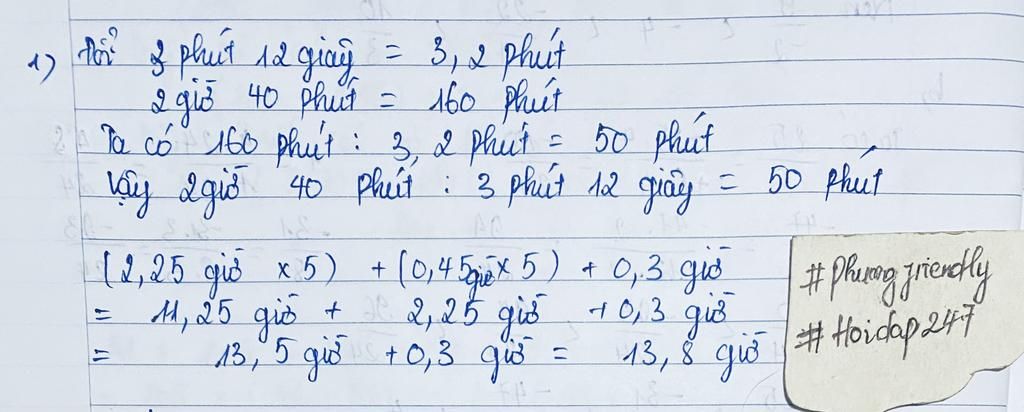 1) Đổi 3 phút 12 giây = 3,2 phút
2 giờ 40 phút = 160 phút
Ta có 160 phút : 3,2 phút = 50 phút
Vậy 2 giờ 40 phút : 3 phút 12 giây = 50 phút
(2,25 giờ x 5) + (0,45 giờ x 5) + 0,3 giờ
= 11,25 giờ + 2,25 giờ + 0,3 giờ
= 13,5 giờ + 0,3 giờ = 13,8 giờ
# Phuongfriendly
# Hoidap247